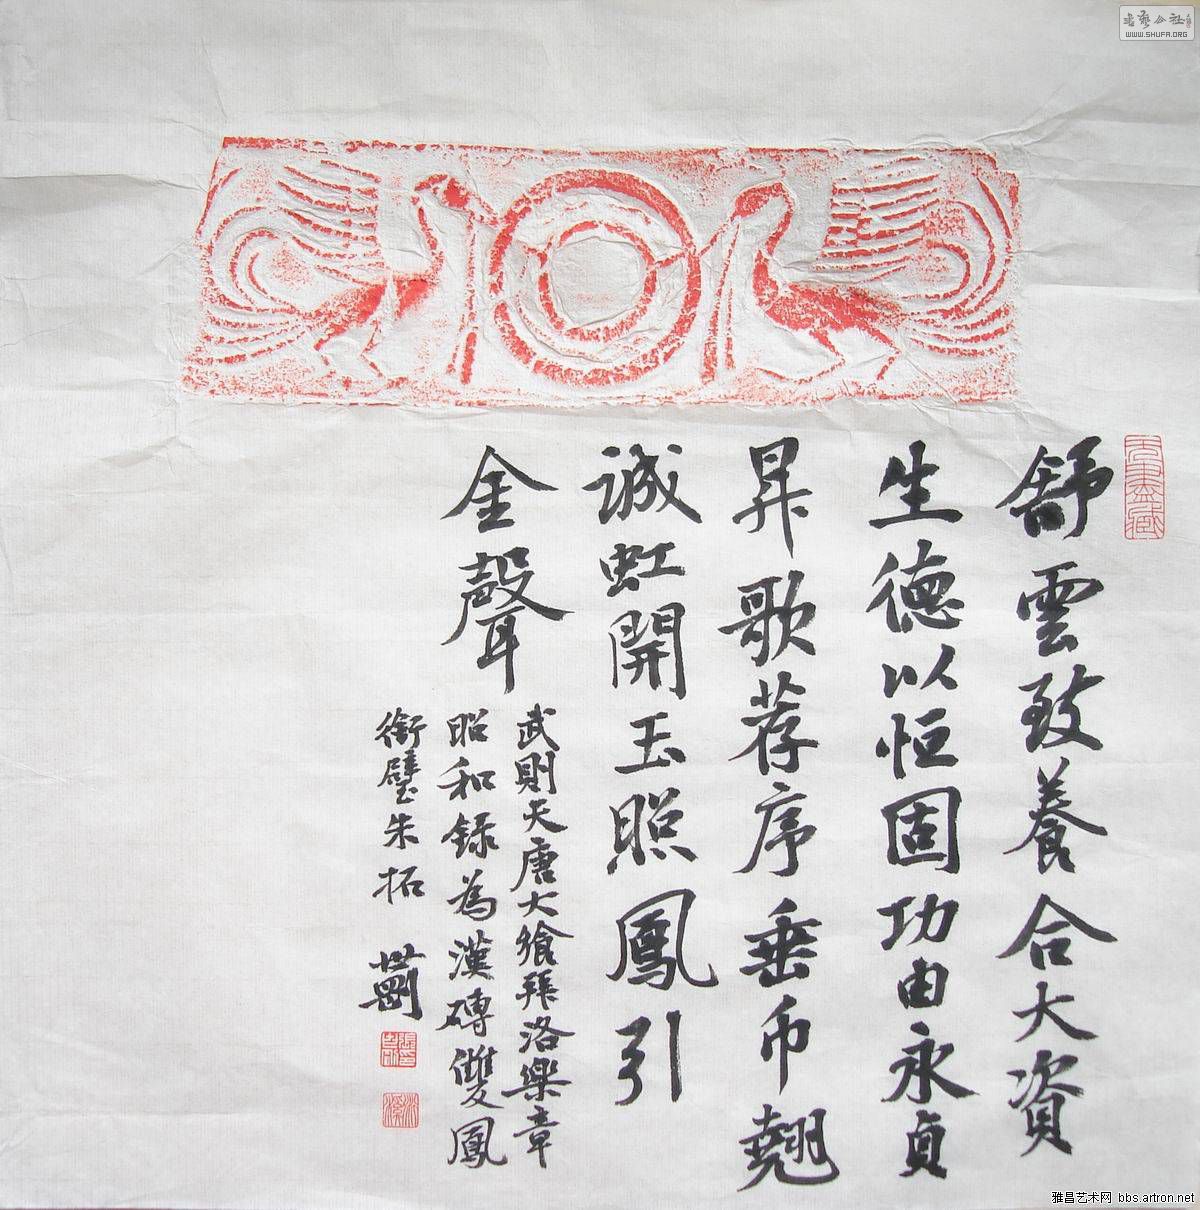 舒雲致養合大資
生德以恒固功由永貞
昇歌荐序垂币翹
誠虹開玉照鳳引
金聲
武則天唐大飨拜洛樂章
昭和録為漢磚雙鳳
銜璧朱拓
WWW.SHUFA.ORG
雅昌艺术网 bbs.artron.net